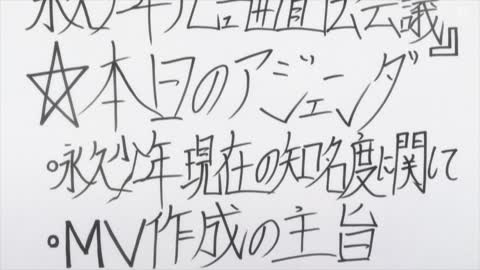 永久少年 会議』
☆本日のアジェンダ
°永久少年現在の知名度に関して
°MV作成の主旨